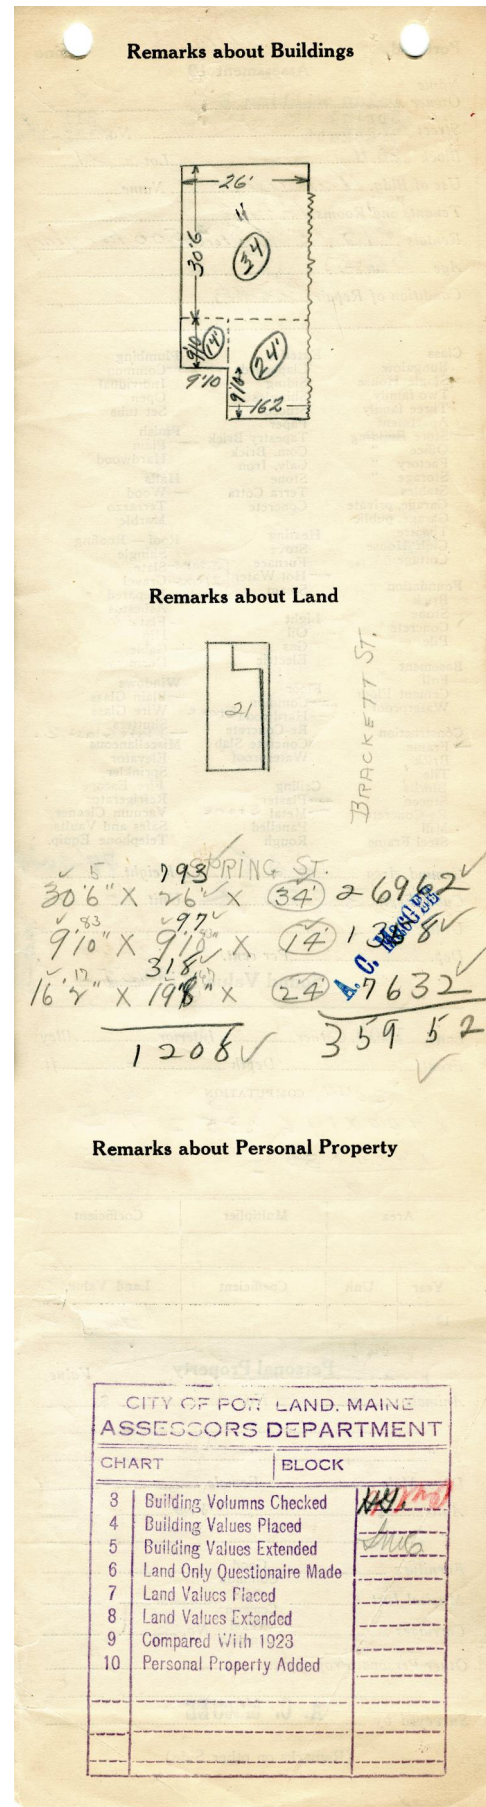 Remarks about Buildings
26'
30'6
34
9'10
14'
24'
9'10
9'10
162
Remarks about Land
21
BRACKETT ST.
SPRING ST.
5 793
30'6" X 26' X 34' 26962
83 97
9'10" X 9'10 X 14'
A. C. McGEE
17 318
16'2" X 19'8" X 24' 7632
1208 35952
Remarks about Personal Property
CITY OF PORTLAND, MAINE
ASSESSORS DEPARTMENT
CHART BLOCK
3 Building Volumns Checked
4 Building Values Placed
5 Building Values Extended
6 Land Only Questionaire Made
7 Land Values Placed
8 Land Values Extended
9 Compared With 1923
10 Personal Property Added